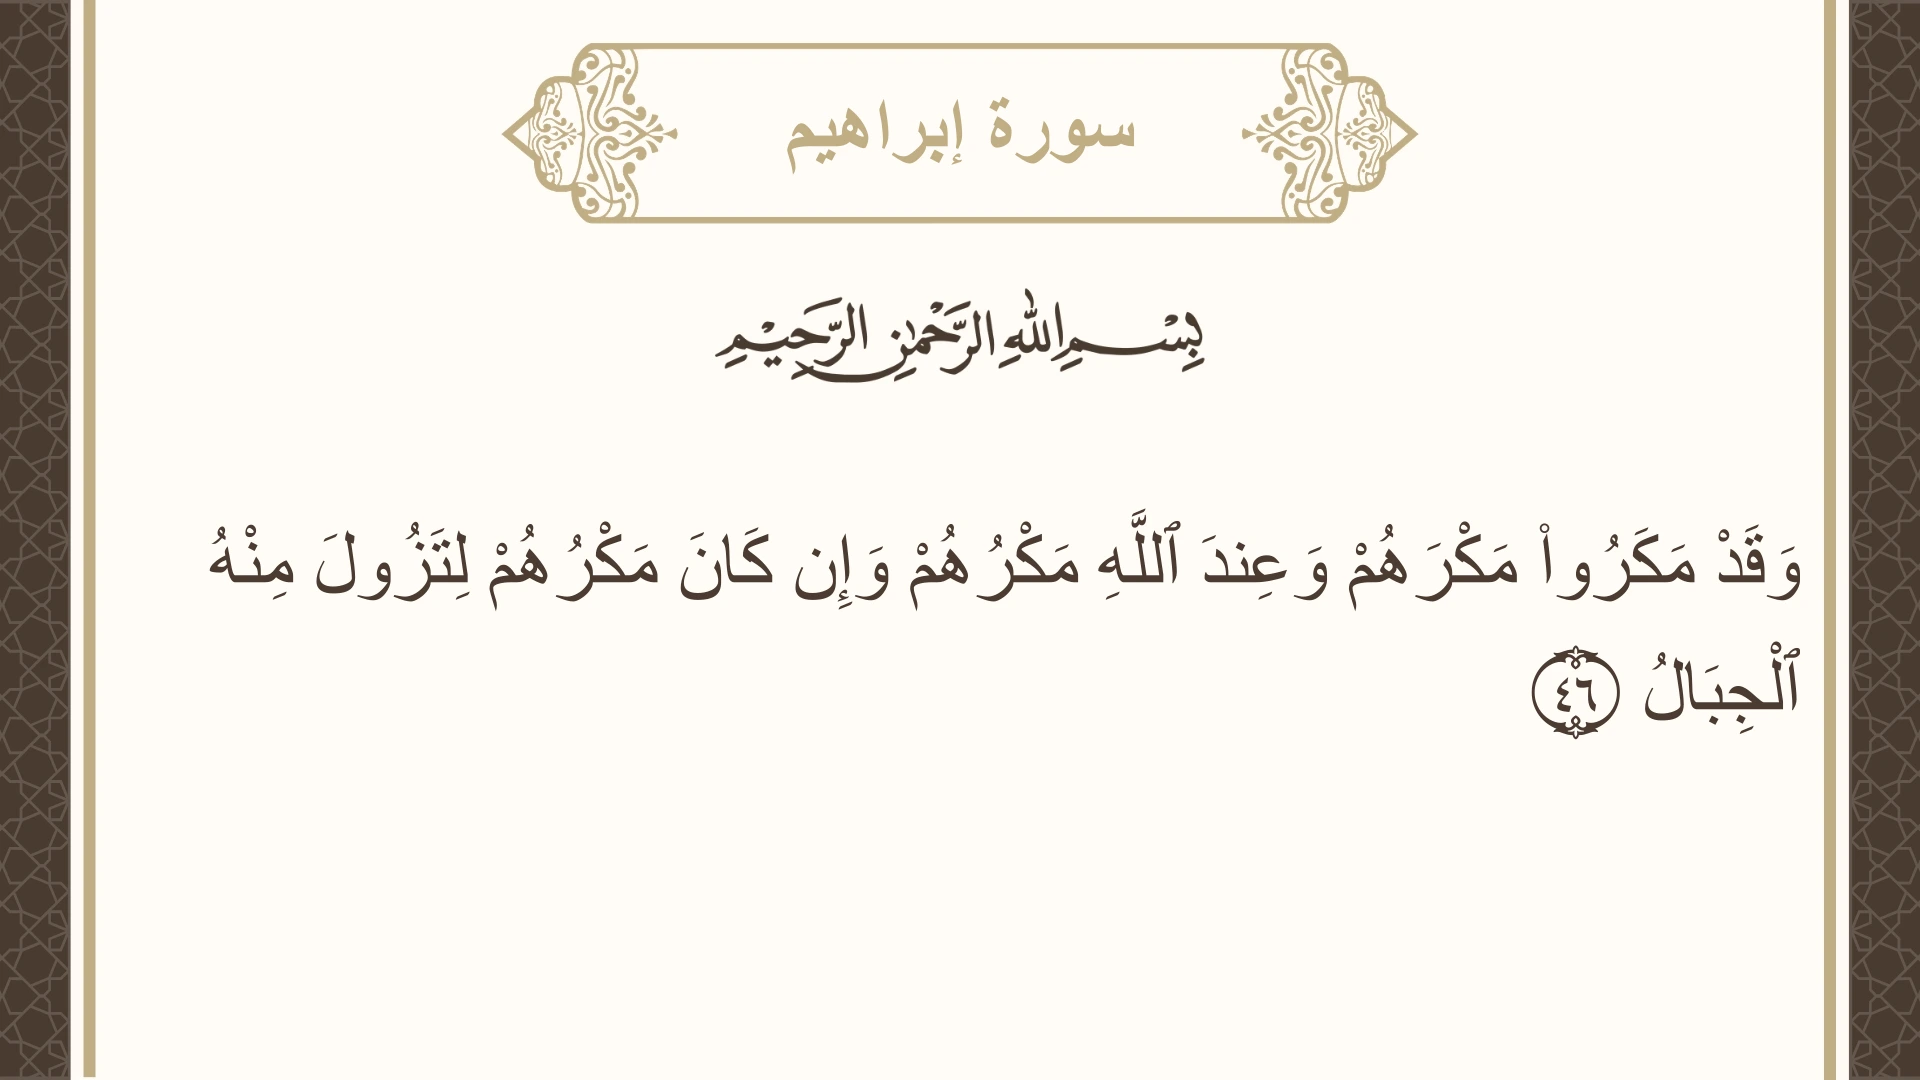 سورة إبراهيم
بِسْمِ اللهِ الرَّحْمٰنِ الرَّحِيْمِ
وَقَدْ مَكَرُوا۟ مَكْرَهُمْ وَعِندَ ٱللَّهِ مَكْرُهُمْ وَإِن كَانَ مَكْرُهُمْ لِتَزُولَ مِنْهُ
ٱلْجِبَالُ ٤٦